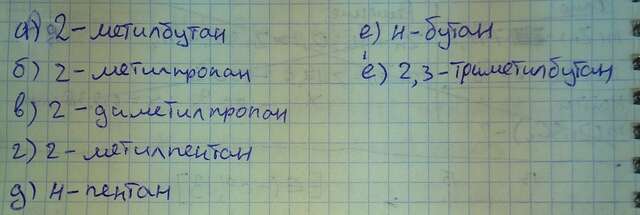 а) 2-метилбутан
б) 2-метилпропан
в) 2-диметилпропан
г) 2-метилпентан
д) н-пентан
е) н-бутан
ё) 2,3-триметилбутан